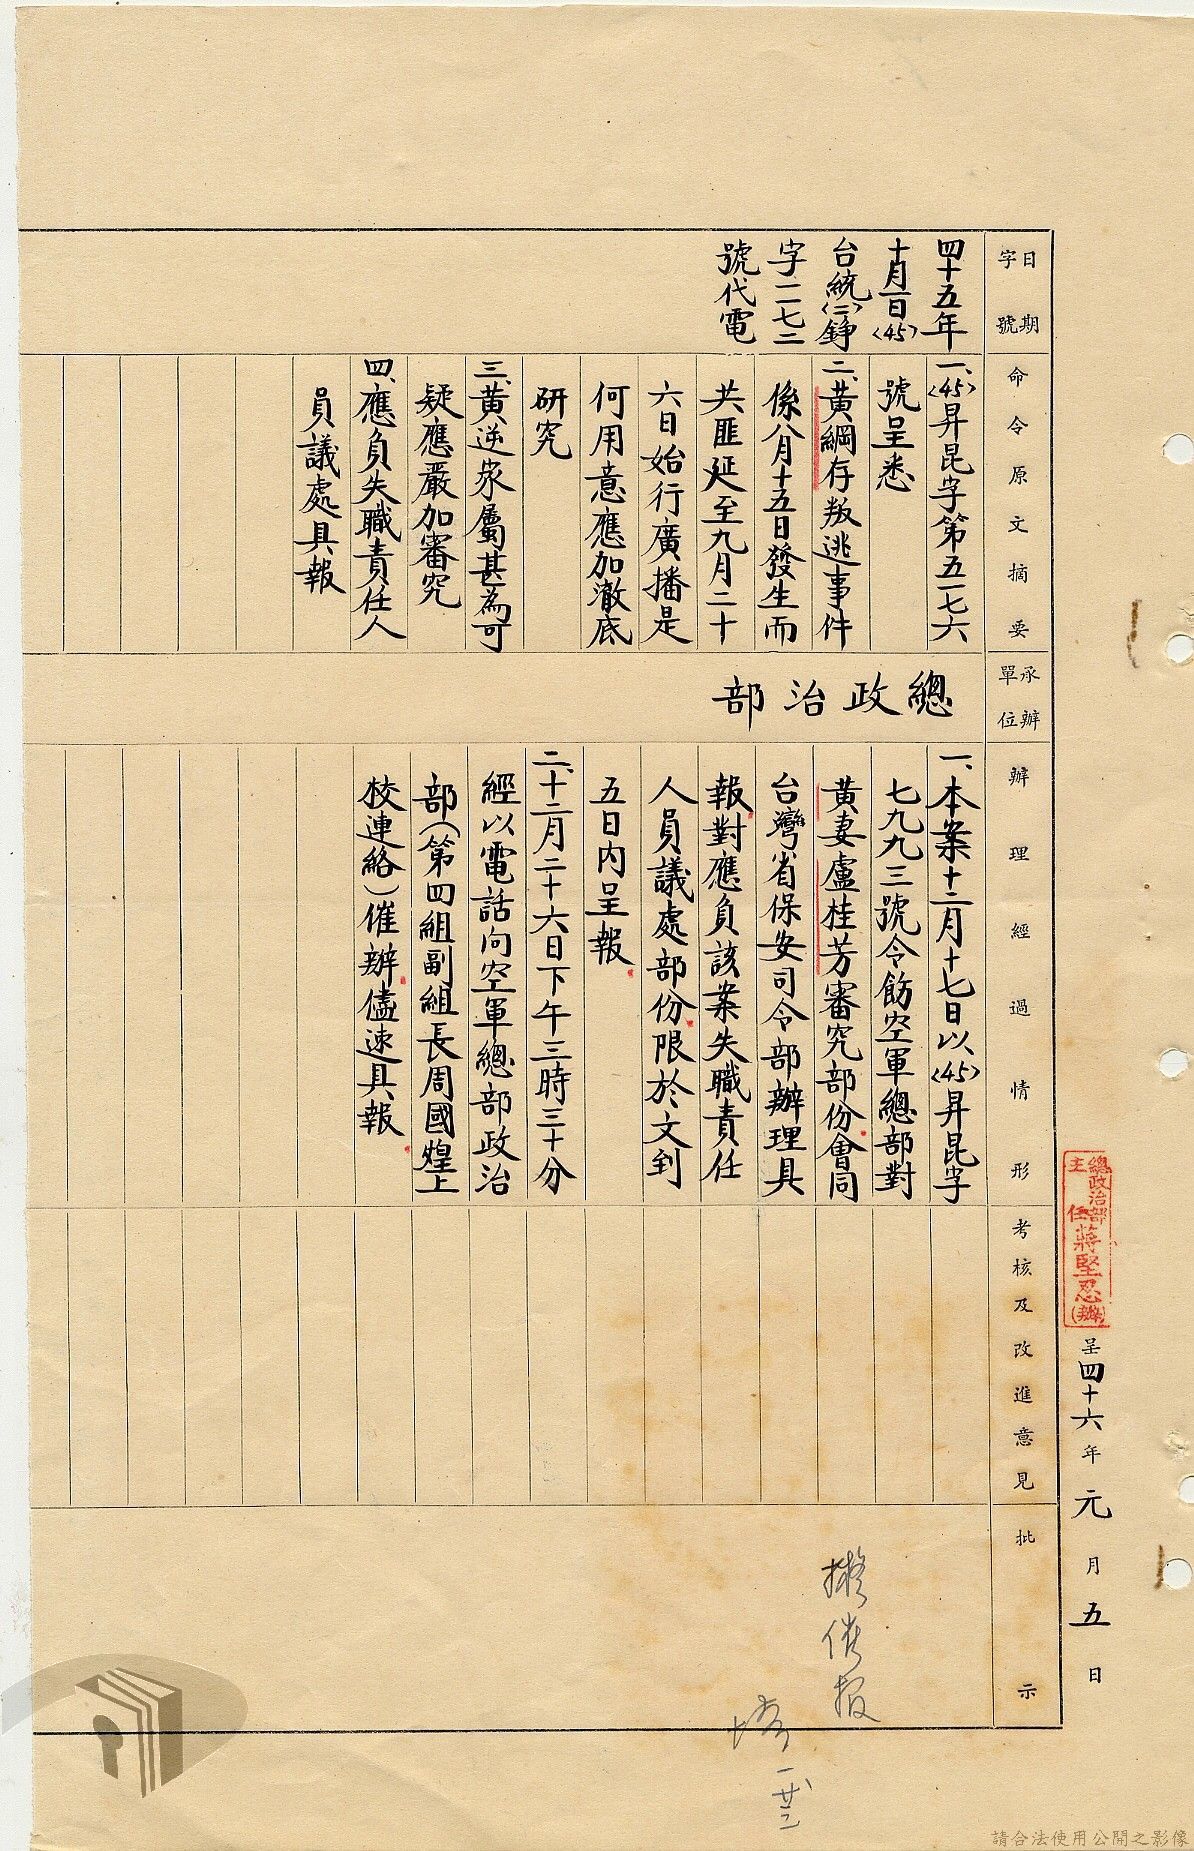 總政治部
主任蔣堅忍(辦)
呈四十六年元月五日
日期
字號
四十五年
十月一日〈45〉
台統〈二〉錚
字一二七二
號代電
命令原文摘要
一、〈45〉昇昆字第五一七六
號呈悉
二、黃綱存叛逃事件
係八月十五日發生而
共匪延至九月二十
六日始行廣播是
何用意應加澈底
研究
三、黃逆家屬甚為可
疑應嚴加審究
四、應負失職責任人
員議處具報
承辦
單位
總政治部
辦理經過情形
一、本案十二月十七日以〈45〉昇昆字
七九九三號令飭空軍總部對
黃妻盧桂芳審究部份會同
台灣省保安司令部辦理具
報對應負該案失職責任
人員議處部份限於文到
五日內呈報
二、十二月二十六日下午三時三十分
經以電話向空軍總部政治
部(第四組副組長周國煌上
校連絡)催辦儘速具報
考核及改進意見
批示
擬催報
請合法使用公開之影像